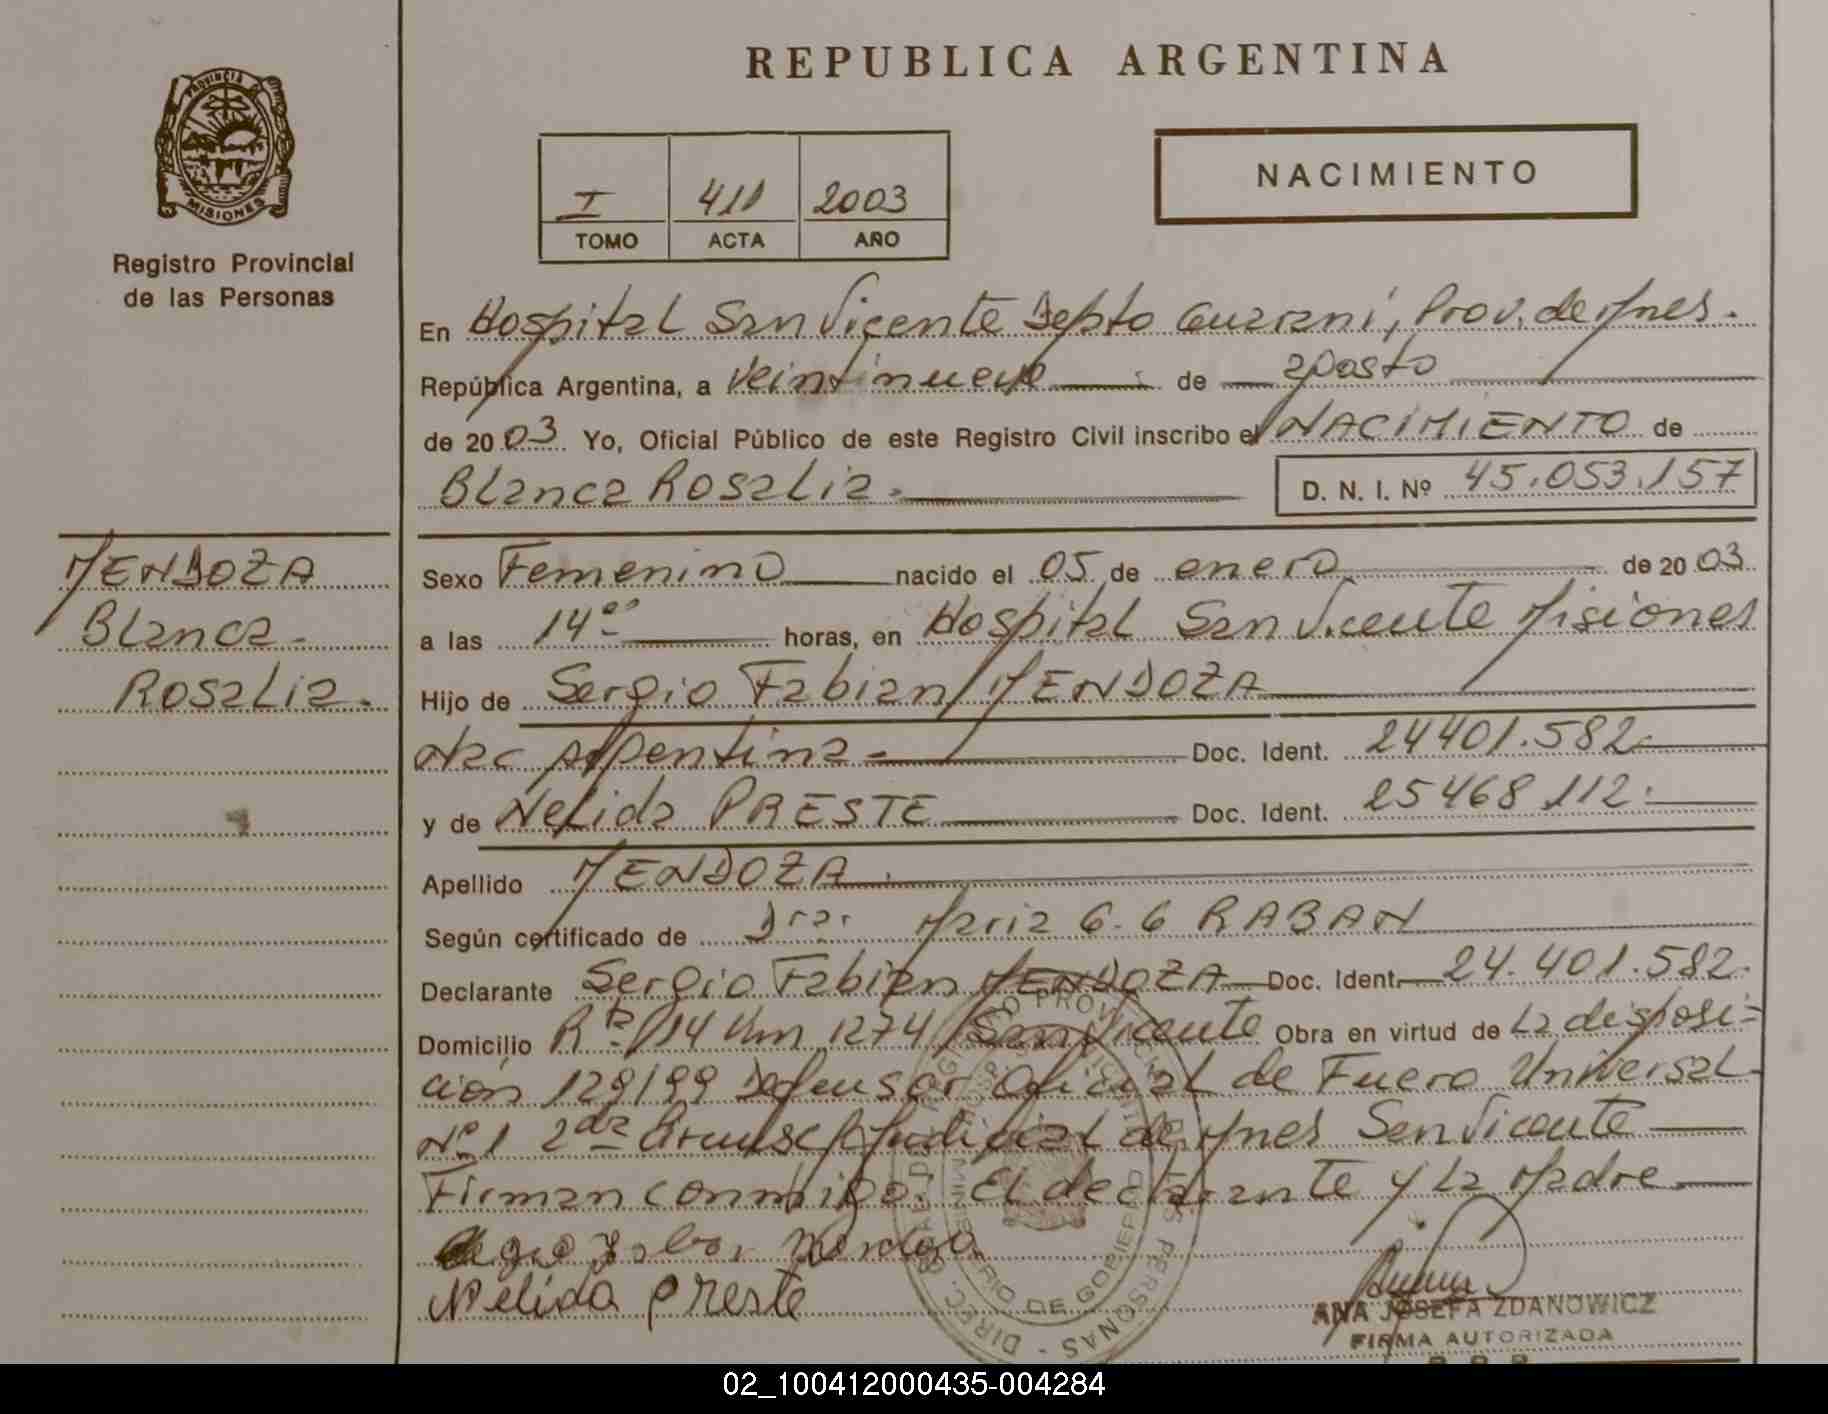 REPUBLICA ARGENTINA
PROVINCIA DE
MISIONES
Registro Provincial
de las Personas
I 411 2003
TOMO ACTA AÑO
NACIMIENTO
En Hospital San Vicente Depto Guarani, Prov. de Mnes.
República Argentina, a veintinueve de agosto
de 2003 Yo, Oficial Público de este Registro Civil inscribo el NACIMIENTO de
Blanca Rosalia. D. N. I. Nº 45.053.157
MENDOZA
Blanca
Rosalia.
Sexo Femenino nacido el 05 de enero de 2003
a las 14ºº horas, en Hospital San Vicente Misiones
Hijo de Sergio Fabian MENDOZA
Nac Argentina Doc. Ident. 24401.582
y de Nelida PRESTE Doc. Ident. 25468.112
Apellido MENDOZA
Según certificado de Dra. Maria G. G RABAN
Declarante Sergio Fabian MENDOZA Doc. Ident. 24.401.582.
Domicilio Rta 14 Km 1274 San Vicente Obra en virtud de La disposi-
ción 129/99 Defensor Oficial de Fuero Universal
Nº1 2da Circunsc Judicial de Mnes San Vicente
Firman conmigo: El declarante y La Madre
Mendoza
Nelida Preste
ANA JOSEFA ZDANOWICZ
FIRMA AUTORIZADA
MINISTERIO DE GOBIERNO
02_100412000435-004284